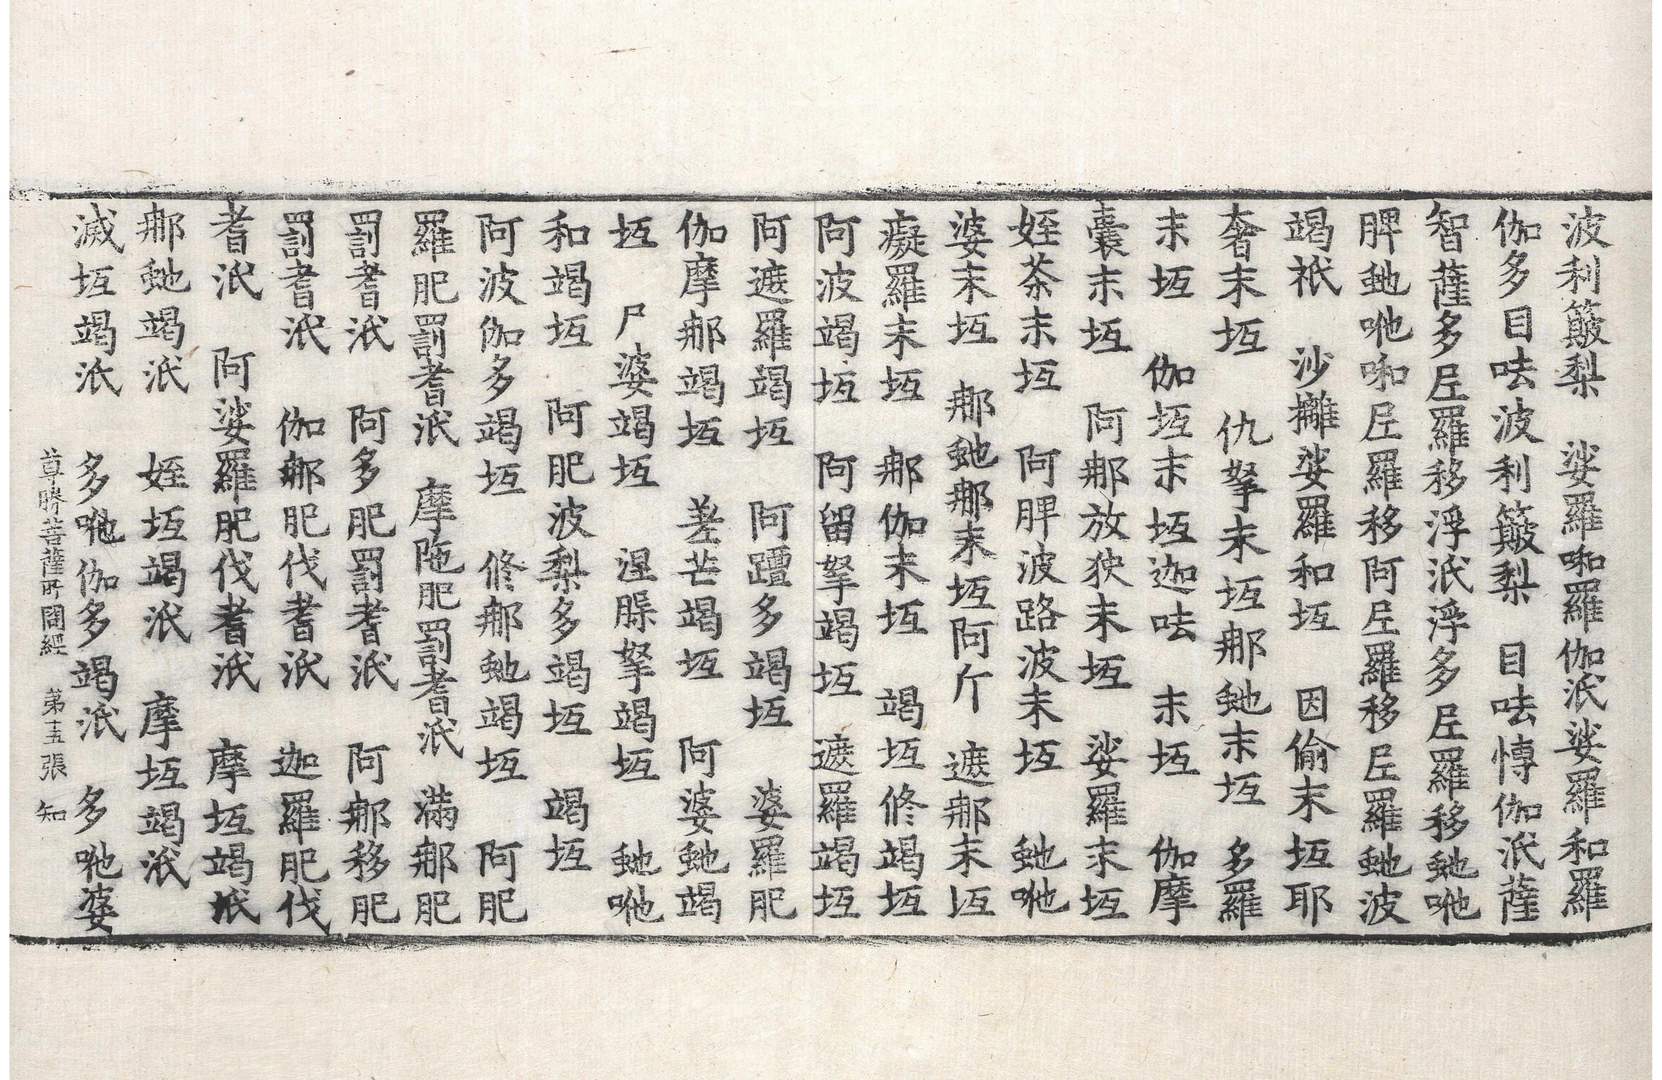 波利簸梨　娑羅㖿羅伽泜娑羅和羅
伽多目呿波利簸梨　目呿慱伽泜薩
智薩多𡰱羅移浮泜浮多𡰱羅移虵吔
脾虵吔㖿𡰱羅移阿𡰱羅移𡰱羅虵波
竭祇　沙攡娑羅和坘　因偷末坘耶
奢末坘　仇拏末坘那虵末坘　多羅
末坘　伽坘末坘迦呿　末坘　伽摩
囊末坘　阿那放狹末坘　娑羅末坘
姪荼末坘　阿脾波路波末坘　虵吔
婆末坘　那虵那末坘阿斤　遮那末坘
癡羅末坘　那伽末坘　竭坘修竭坘
阿波竭坘　阿留拏竭坘　遮羅竭坘
阿遮羅竭坘　阿蹧多竭坘　婆羅肥
伽摩那竭坘　差芒竭坘　阿婆虵竭
坘　尸婆竭坘　涅𦞦拏竭坘　虵吔
和竭坘　阿肥波梨多竭坘　竭坘
阿波伽多竭坘　修那虵竭坘　阿肥
羅肥罰耆泜　摩陁肥罰耆泜　滿那肥
罰耆泜　阿多肥罰耆泜　阿那移肥
罰耆泜　伽那肥伐耆泜　迦羅肥伐
耆泜　阿娑羅肥伐耆泜　摩坘竭泜
那虵竭泜　姪坘竭泜　摩坘竭泜
滅坘竭泜　多吔伽多竭泜　多吔婆
尊勝菩薩所問經　第十五張　知